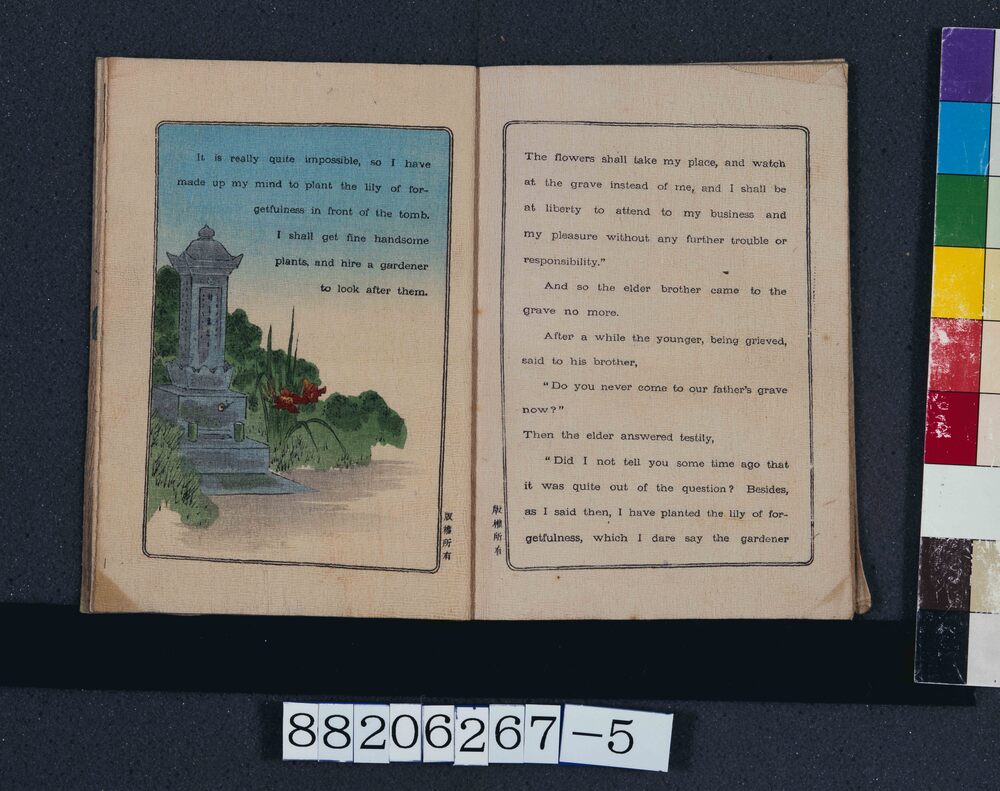 It is really quite impossible, so I have
made up my mind to plant the lily of for-
getfulness in front of the tomb.
I shall get fine handsome
plants, and hire a gardener
to look after them.
版權所有
The flowers shall take my place, and watch
at the grave instead of me, and I shall be
at liberty to attend to my business and
my pleasure without any further trouble or
responsibility.”
And so the elder brother came to the
grave no more.
After a while the younger, being grieved,
said to his brother,
“Do you never come to our father’s grave
now?”
Then the elder answered testily,
“Did I not tell you some time ago that
it was quite out of the question? Besides,
as I said then, I have planted the lily of for-
getfulness, which I dare say the gardener
版權所有
88206267-5